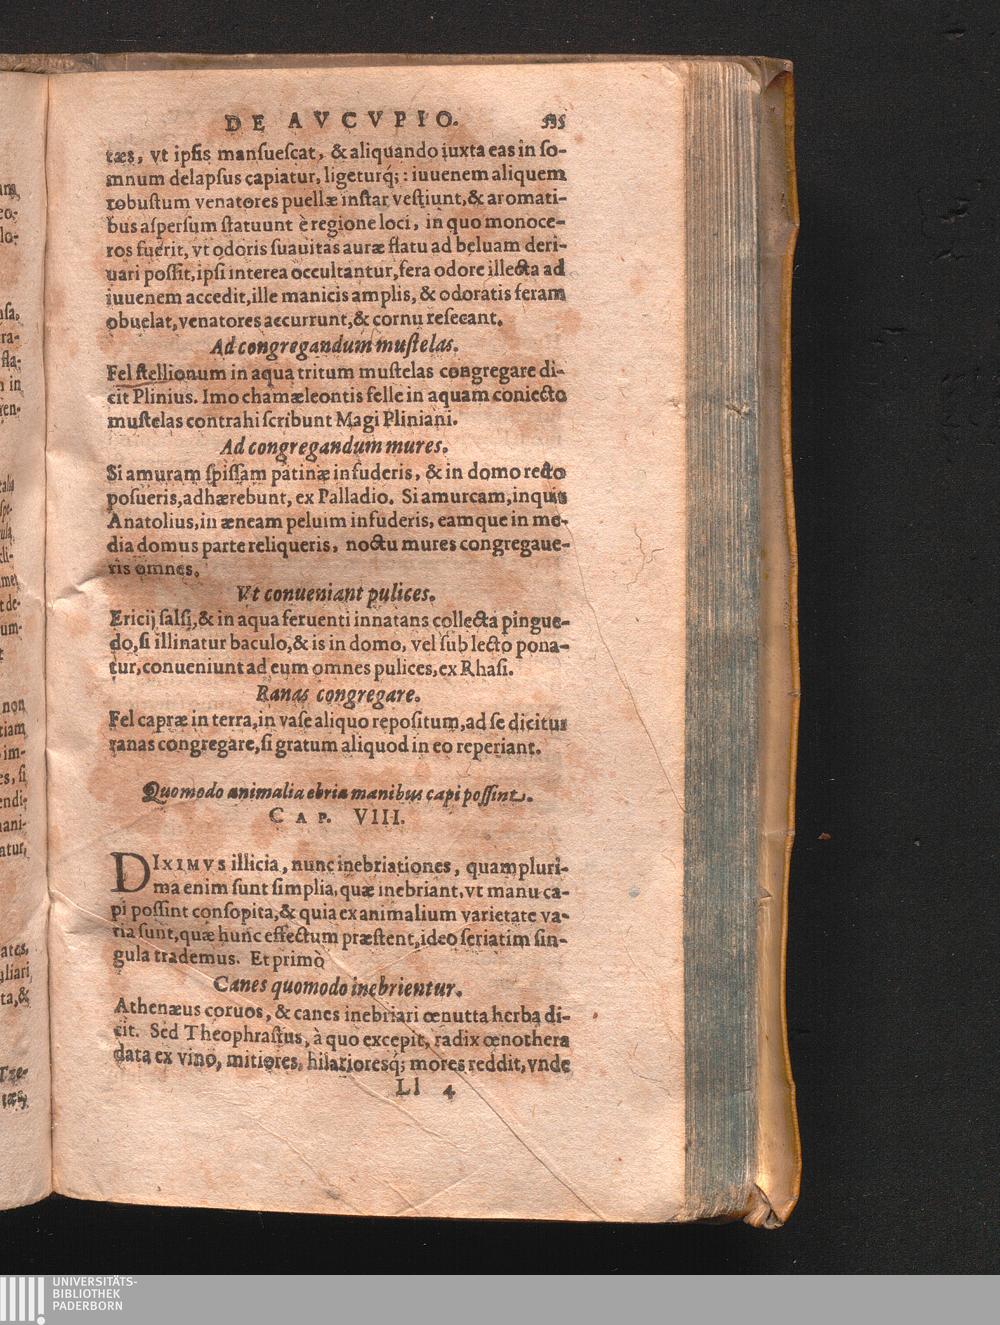 DE AVCVPIO. 535
tæs, vt ipſis manſueſcat, & aliquando iuxta eas in ſo-
mnum delapſus capiatur, ligeturq́;: iuuenem aliquem
robuſtum venatores puellæ inſtar veſtiunt, & aromati-
bus aſperſum ſtatuunt è regione loci, in quo monoce-
ros fuerit, vt odoris ſuauitas auræ flatu ad beluam deri-
uari poſſit, ipſi interea occultantur, fera odore illecta ad
iuuenem accedit, ille manicis amplis, & odoratis feram
obuelat, venatores accurrunt, & cornu reſecant.
Ad congregandum muſtelas.
Fel ſtellionum in aqua tritum muſtelas congregare di-
cit Plinius. Imo chamæleontis felle in aquam coniecto
muſtelas contrahi ſcribunt Magi Pliniani.
Ad congregandum mures.
Si amuram ſpiſſam patinæ infuderis, & in domo recto
poſueris, adhærebunt, ex Palladio. Si amurcam, inquit
Anatolius, in æneam peluim infuderis, eamque in me-
dia domus parte reliqueris, noctu mures congregaue-
ris omnes.
Vt conueniant pulices.
Ericij ſalſi, & in aqua feruenti innatans collecta pingue-
do, ſi illinatur baculo, & is in domo, vel ſub lecto pona-
tur, conueniunt ad eum omnes pulices, ex Rhaſi.
Ranas congregare.
Fel capræ in terra, in vaſe aliquo repoſitum, ad ſe dicitur
ranas congregare, ſi gratum aliquod in eo reperiant.
Quomodo animalia ebria manibus capi poſſint.
CAP. VIII.
DIXIMVS illicia, nunc inebriationes, quam pluri-
ma enim ſunt ſimplia, quæ inebriant, vt manu ca-
pi poſſint conſopita, & quia ex animalium varietate va-
ria ſunt, quæ hunc effectum præſtent, ideo ſeriatim ſin-
gula trademus. Et primò
Canes quomodo inebrientur.
Athenæus coruos, & canes inebriari œnutta herba di-
cit. Sed Theophraſtus, à quo excepit, radix œnothera
data ex vino, mitiores, hilarioresq́; mores reddit, vnde
Ll 4
UNIVERSITÄTS-
BIBLIOTHEK
PADERBORN